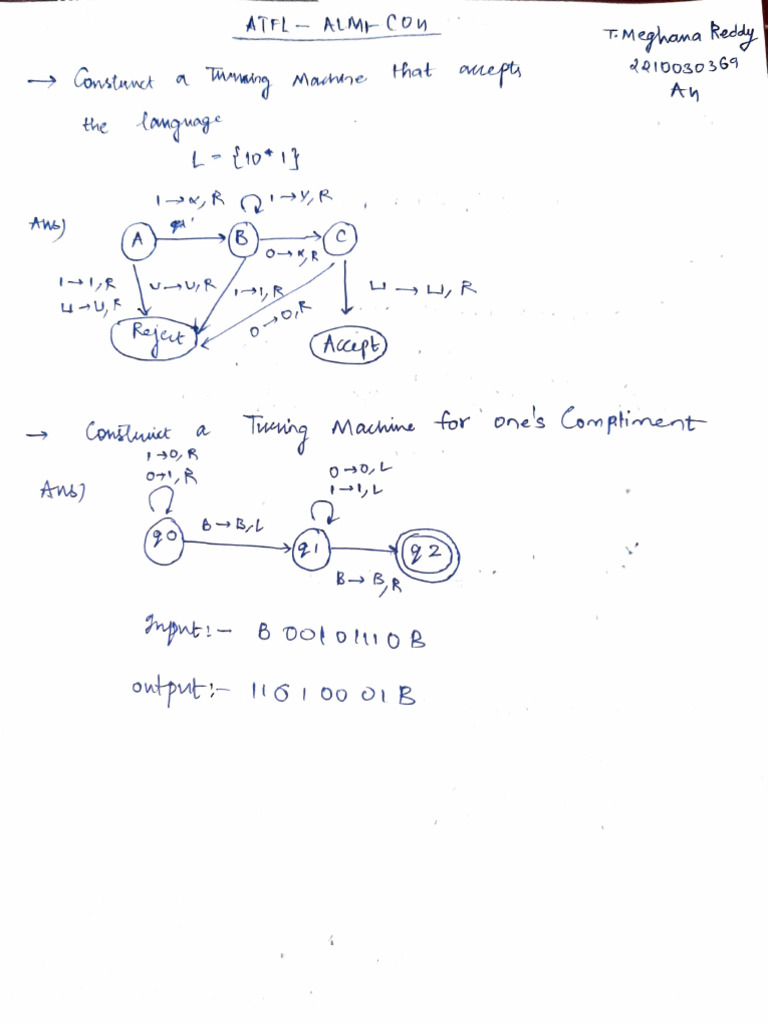 ATFL - ALM - CON
T. Meghana Reddy
2210030369
→ Construct a Turning Machine that accepts
the language
L = {10*1}
Ans)
1→x, R
1→y, R
A
B
C
0→x, R
1→1, R
⊔→⊔, R
⊔→⊔, R
1→1, R
0→0, R
⊔→⊔, R
Reject
Accept
→ Construct a Turing Machine for one's Compliment
Ans)
1→0, R
0→1, R
0→0, L
1→1, L
q0
B→B, L
q1
q2
B→B, R
Input:- B 00101110 B
output:- 11010001 B